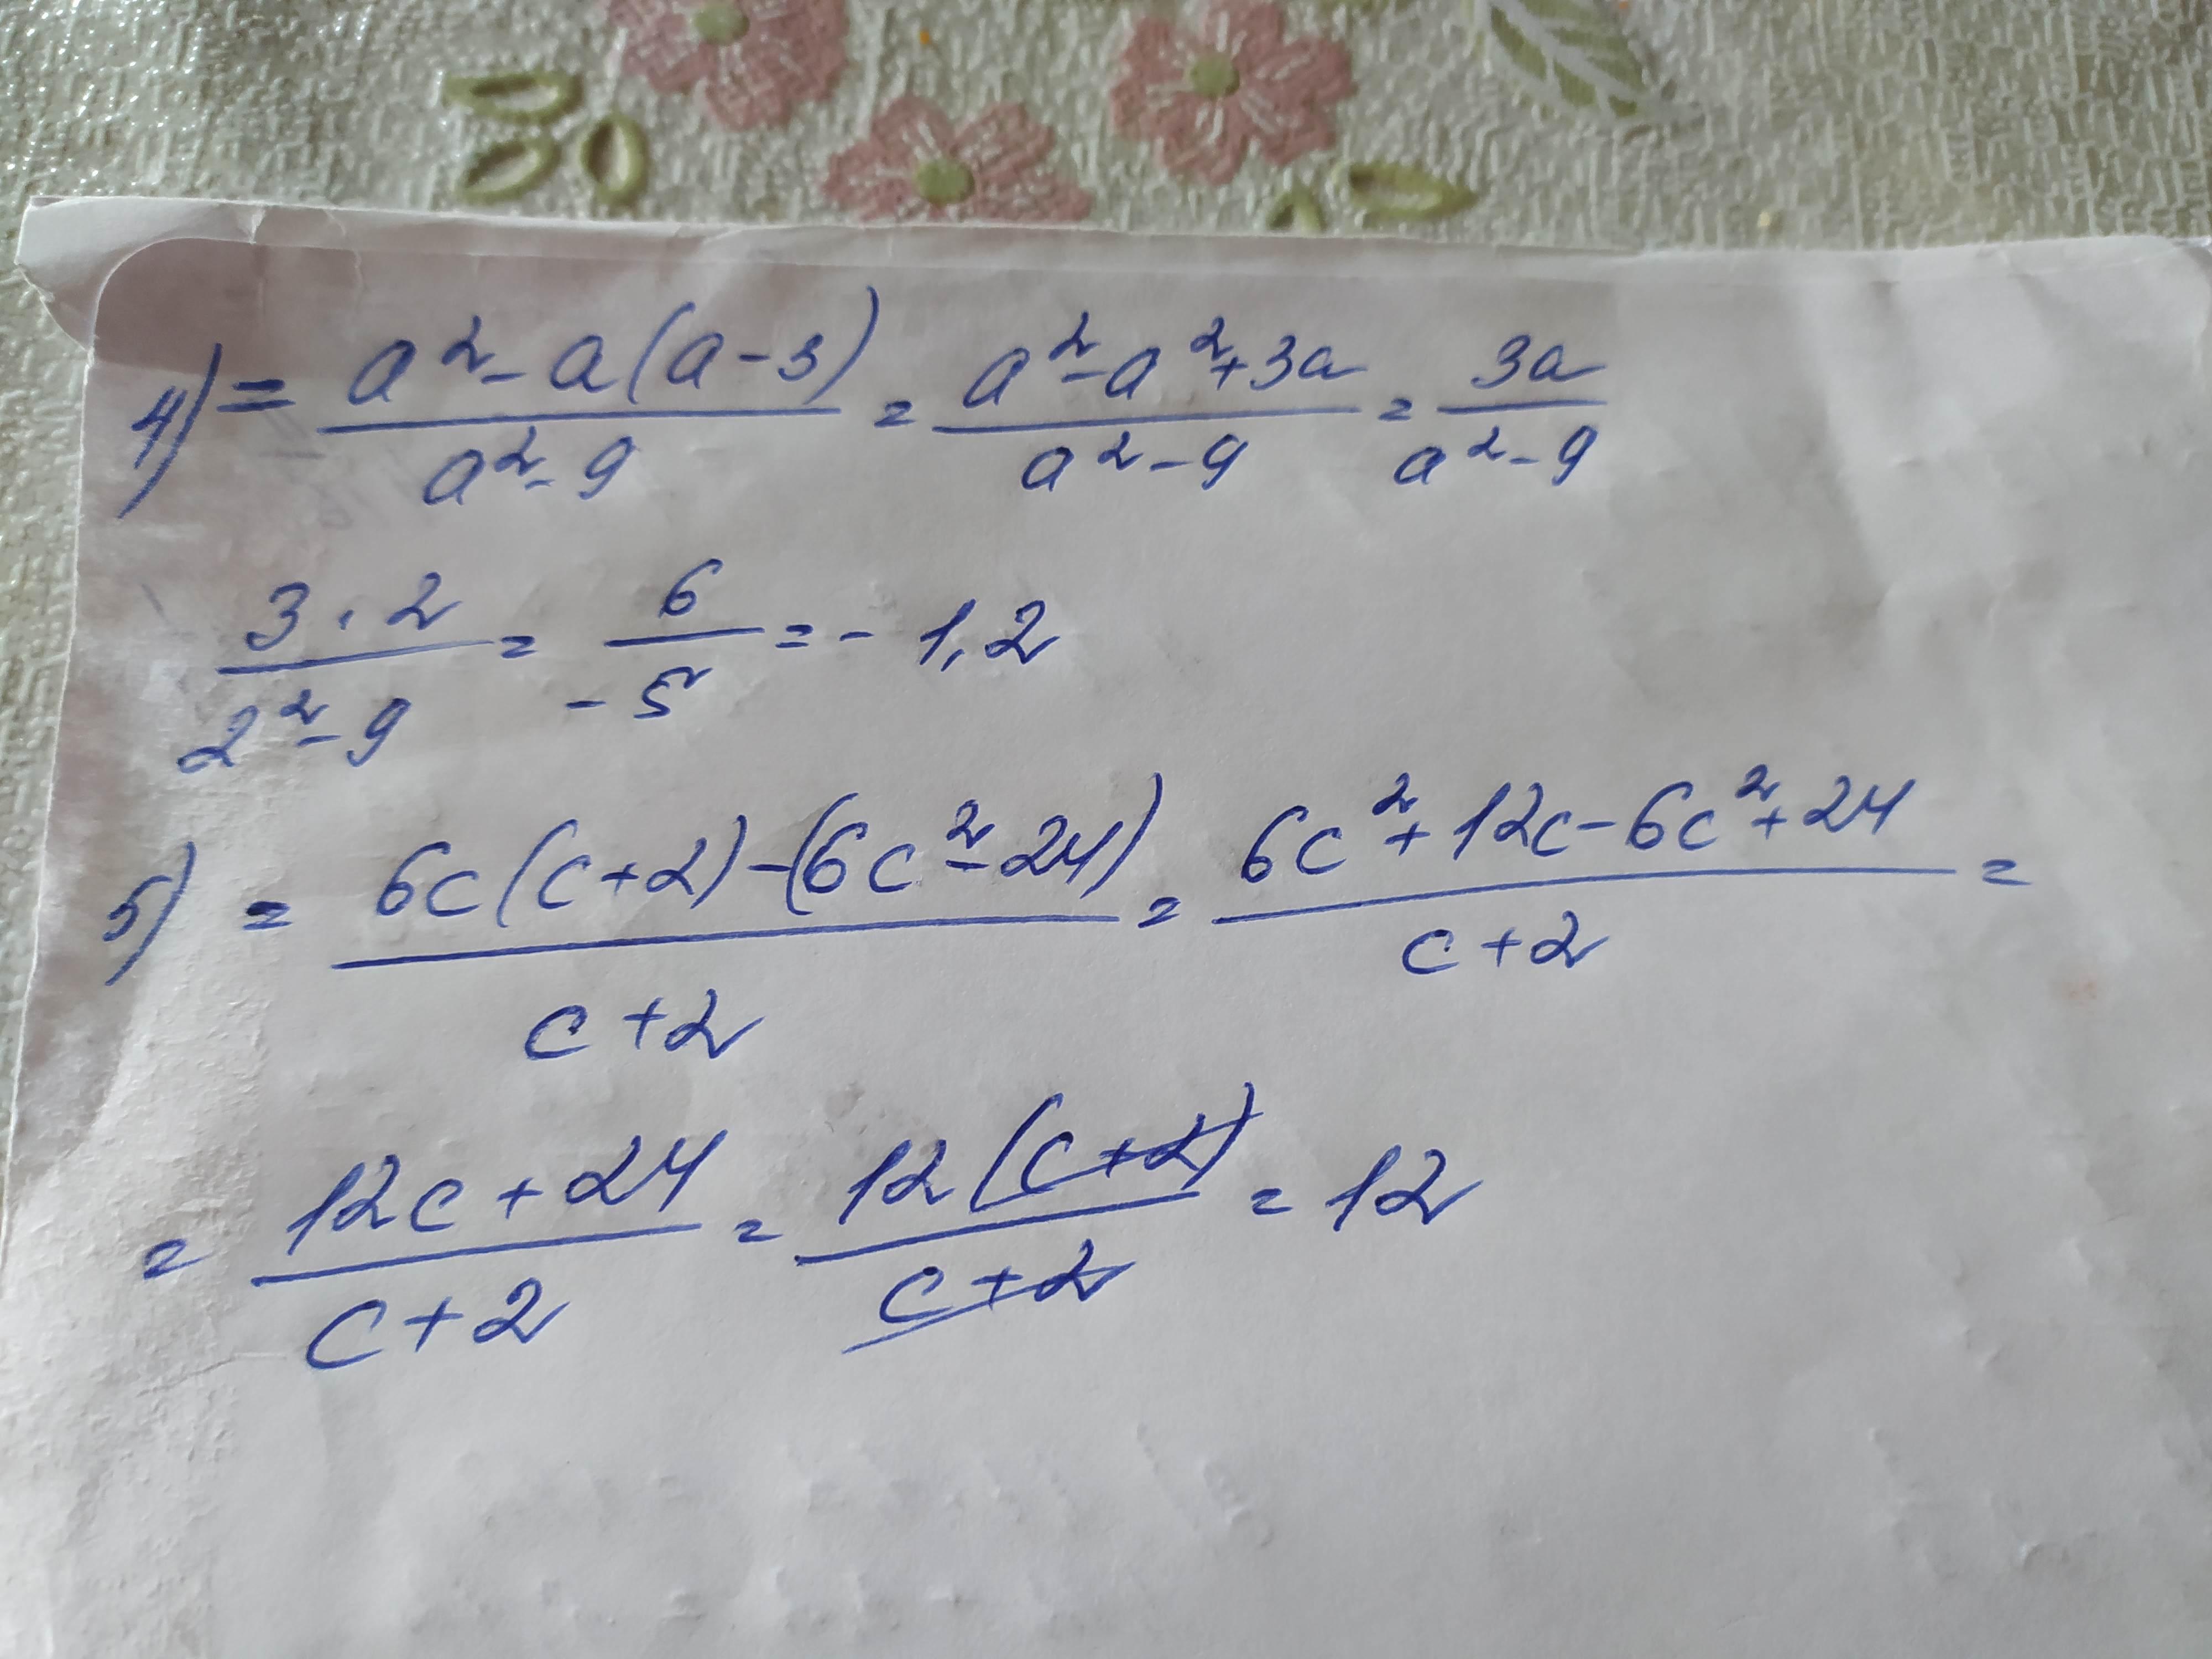 4) = (a² - a(a - 3))/(a² - 9) = (a² - a² + 3a)/(a² - 9) = 3a/(a² - 9)
(3 · 2)/(2² - 9) = 6/(-5) = - 1,2
5) = (6c(c + 2) - (6c² - 24))/(c + 2) = (6c² + 12c - 6c² + 24)/(c + 2) =
= (12c + 24)/(c + 2) = (12(c + 2))/(c + 2) = 12